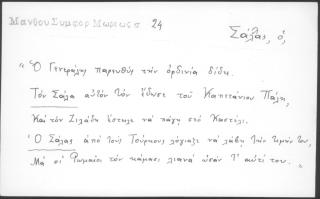 Μάνθου Συμφορ Μωρέως σ 24
Σάλας, ὁ,
"Ὁ Γενεράλης παρευθὺς τὴν ὀρδινία δίδει.
Τὸν Σάλα αὐτὸν τὸν ἔδωσε τοῦ Καπετάνιου Πάλη,
Καὶ τὸν Ζιλάδη ἔστειλε νὰ πάγῃ στὸ Καστέλι.
Ὁ Σάλας ἀπὸ τοὺς Τούρκους λόγιαζε νὰ λάβῃ τὴν τιμήν του,
Μὰ οἱ Ρωμαῖοι τὸν κάμασι λιανὰ ὡσὰν τ' αὐτί του."